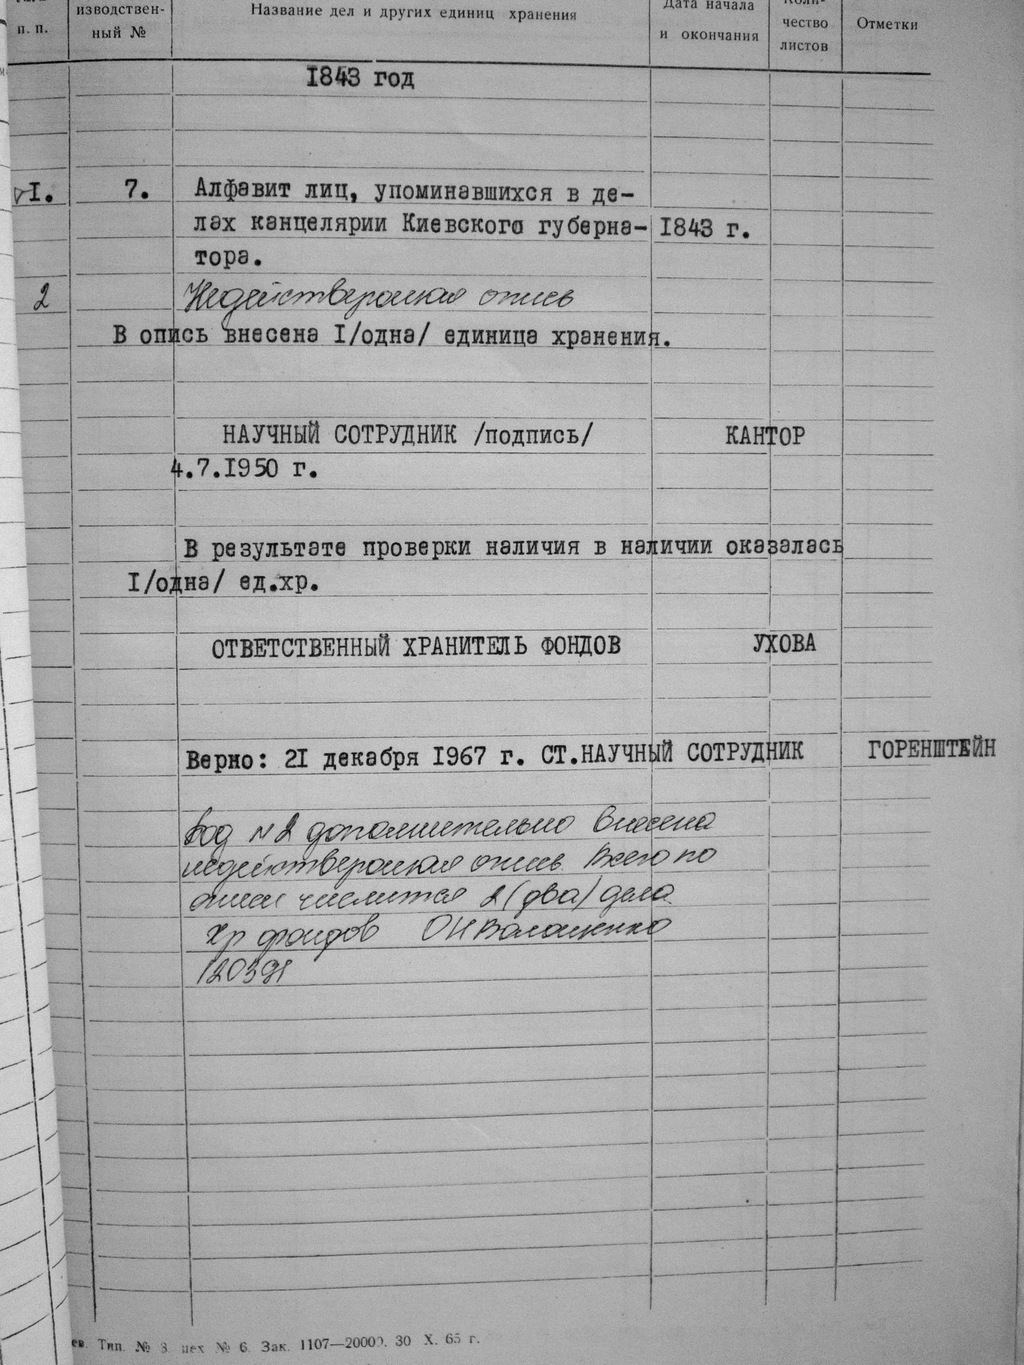 изводствен- Название дел и других единиц хранения Дата начала Коли-
п. п. ный № и окончания чество листов Отметки
1843 год
I. 7. Алфавит лиц, упоминавшихся в де-
лах канцелярии Киевского губерна- 1843 г.
тора.
2 Недействующая опись
В опись внесена I/одна/ единица хранения.
НАУЧНЫЙ СОТРУДНИК /подпись/ КАНТОР
4.7.1950 г.
В результате проверки наличия в наличии оказалась
I/одна/ ед.хр.
ОТВЕТСТВЕННЫЙ ХРАНИТЕЛЬ ФОНДОВ УХОВА
Верно: 21 декабря 1967 г. СТ.НАУЧНЫЙ СОТРУДНИК ГОРЕНШТЕЙН
Под № 2 дополнительно внесена
опись. Всего по
описи числится 2 (два) дела
Хр фондов
120391
Тип. № 3 цех № 6. Зак. 1107—20000. 30 X. 65 г.